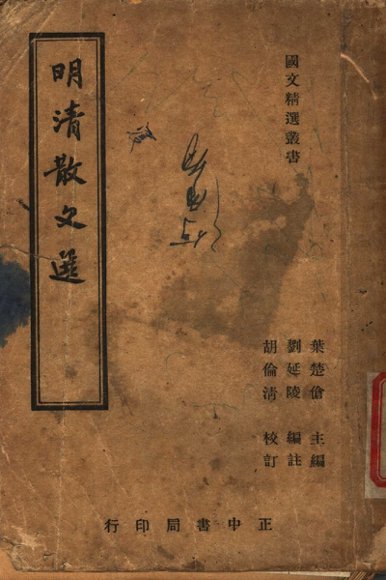 國文精選叢書
明清散文選
葉楚傖 主編
劉延陵 編註
胡倫清 校訂
正中書局印行